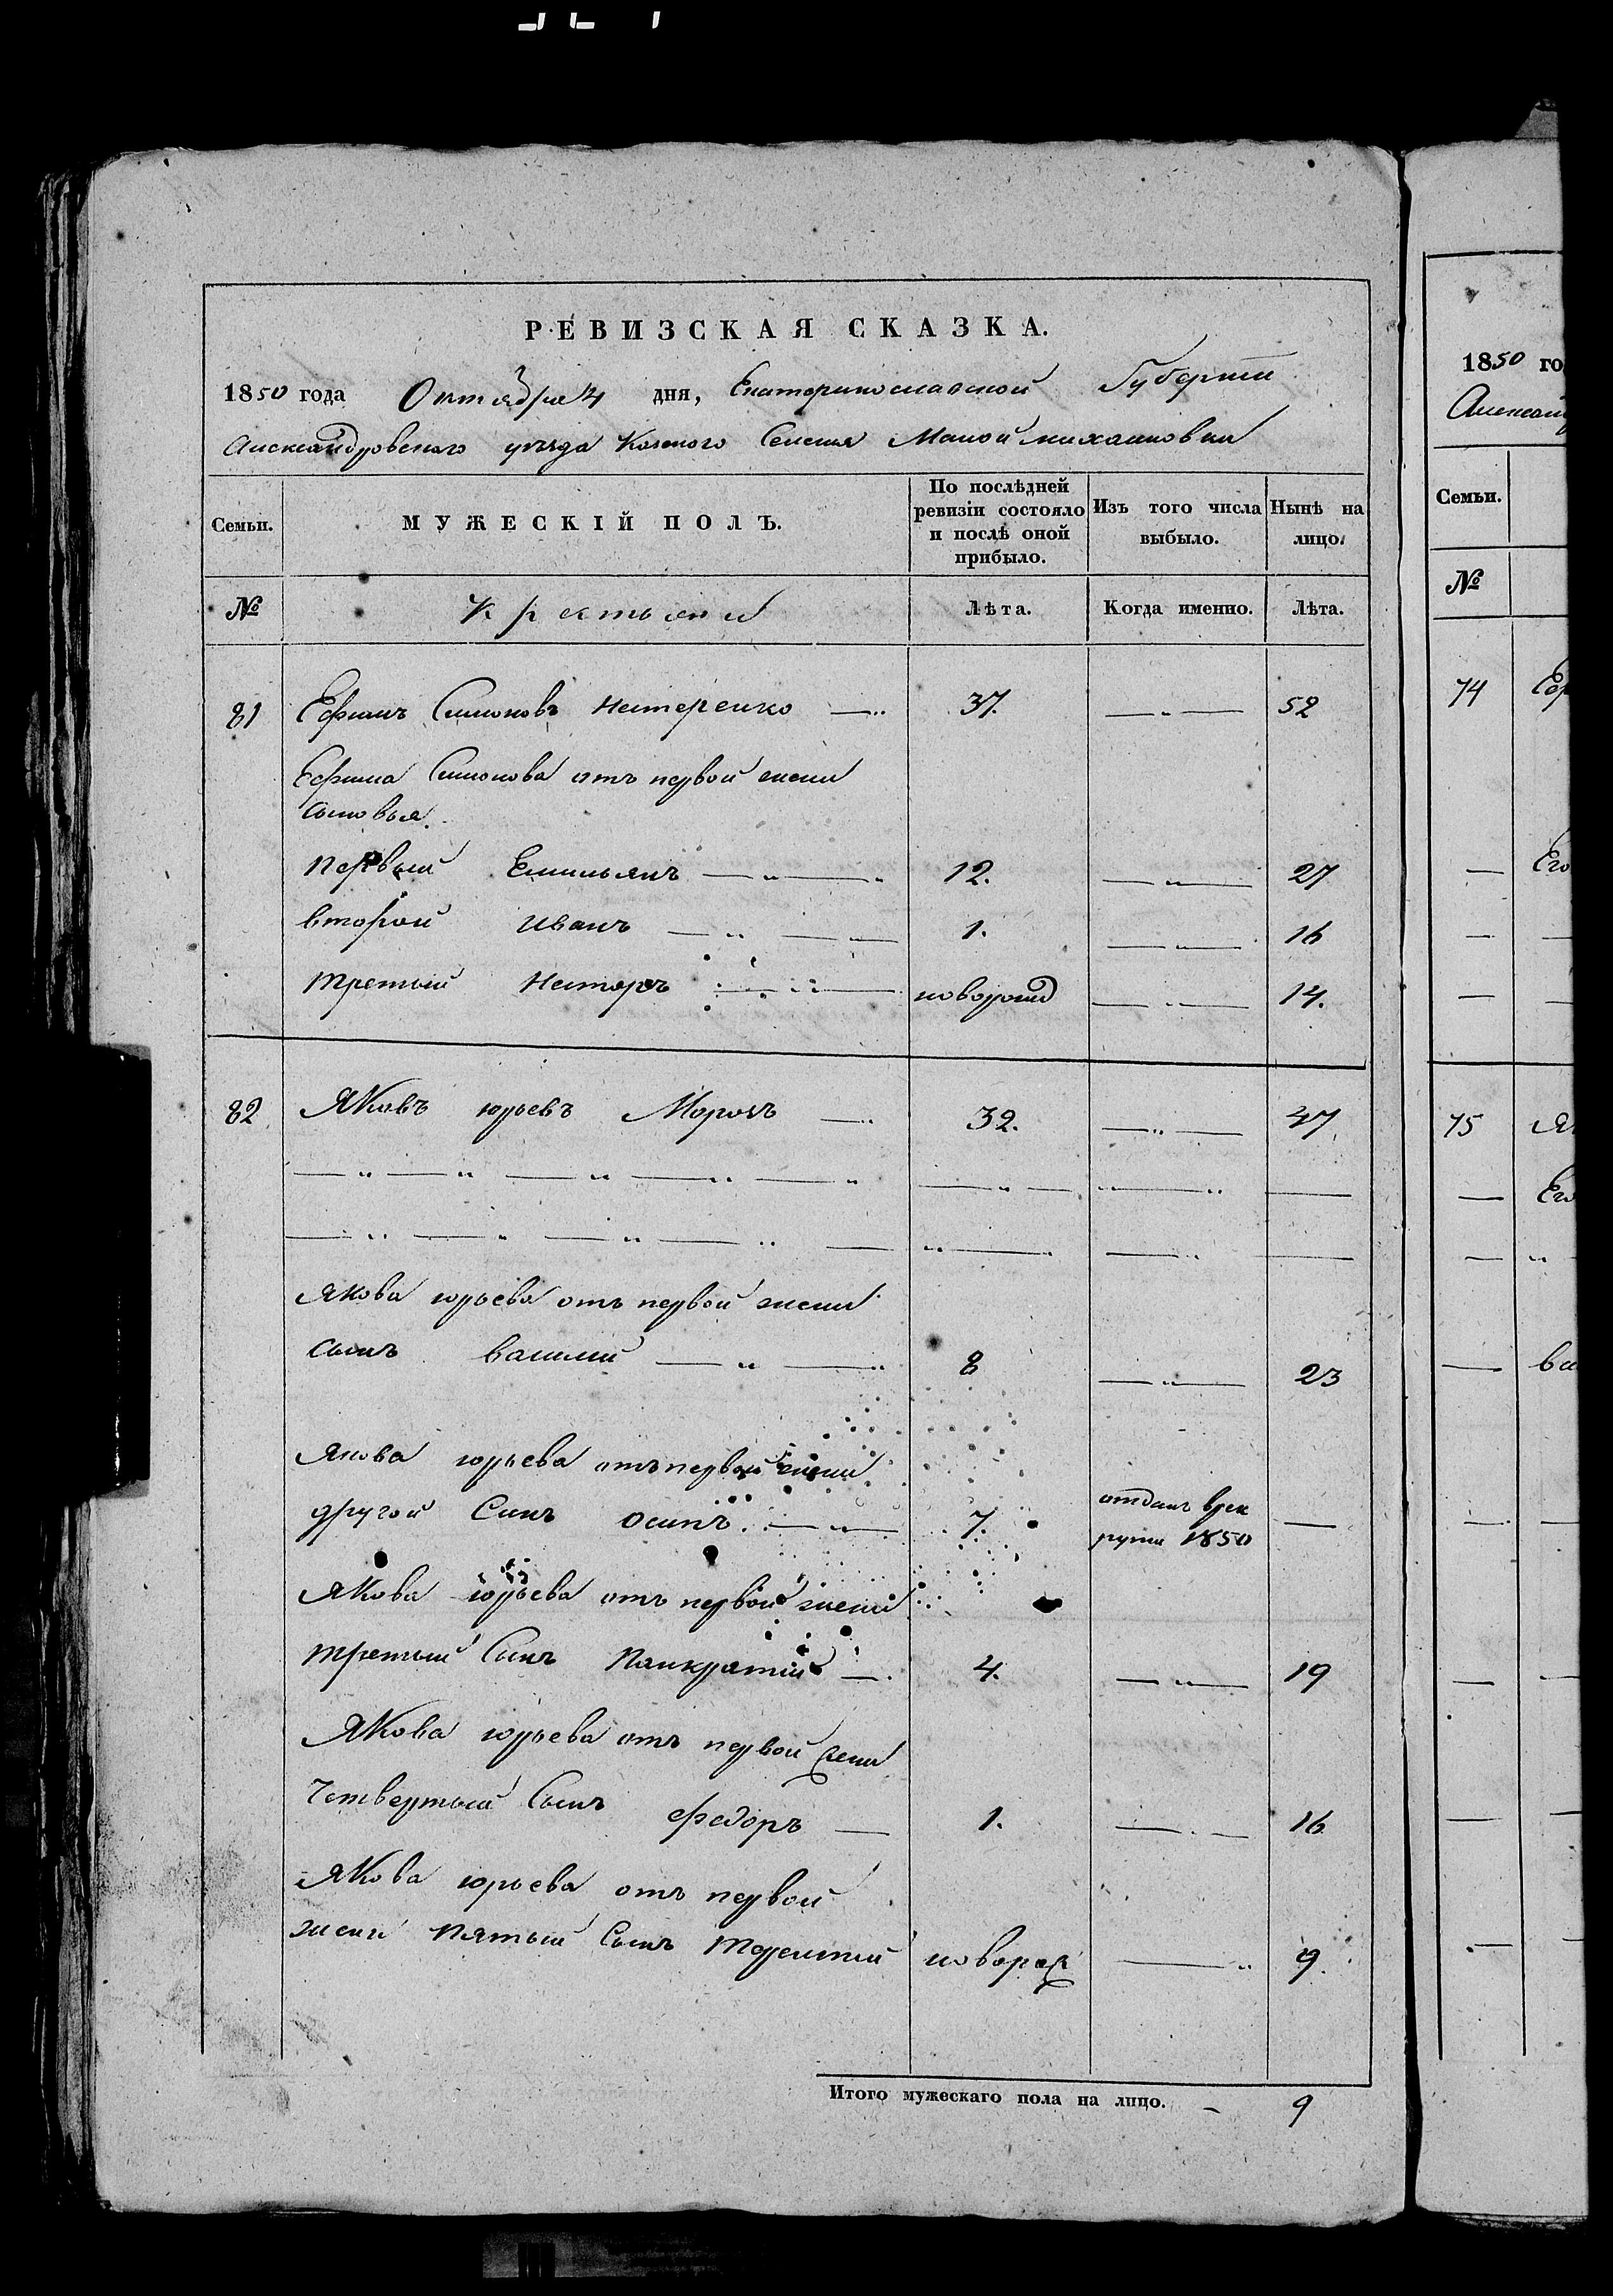 РЕВИЗСКАЯ СКАЗКА.
1850 года Октября 4 дня, Екатеринославской Губернии
Александровского уѣзда Казеного Селения Малой михайловки
Семьи.
МУЖЕСКІЙ ПОЛЪ.
По послѣдней ревизіи состояло и послѣ оной прибыло.
Изъ того числа выбыло.
Нынѣ на лицо.
№
крестьяни
Лѣта.
Когда именно.
Лѣта.
81 Ефимъ Симоновъ Нестеренко 37. 52
Ефима Симонова отъ первой жены
сыновья.
первый Емильянъ 12. 27
второй Иванъ 1. 16
третый Несторъ новорожд 14.
82 Яковъ юрьевъ Морозъ 32. 47
Якова юрьева отъ первой жены
сынъ василий 8 23
Якова юрьева отъ первой жены
другой Сынъ осипъ. 7. отданъ врек
руты 1850
Якова юрьева отъ первой жены
третый Сынъ Панкратий 4. 19
Якова юрьева отъ первой жены
Четвертый Сынъ федоръ 1. 16
Якова юрьева отъ первой
жены Пятый Сынъ Терентий новорож 9.
Итого мужескаго пола на лицо. 9
1850 го
Семьи.
№
74
Его
75
Его